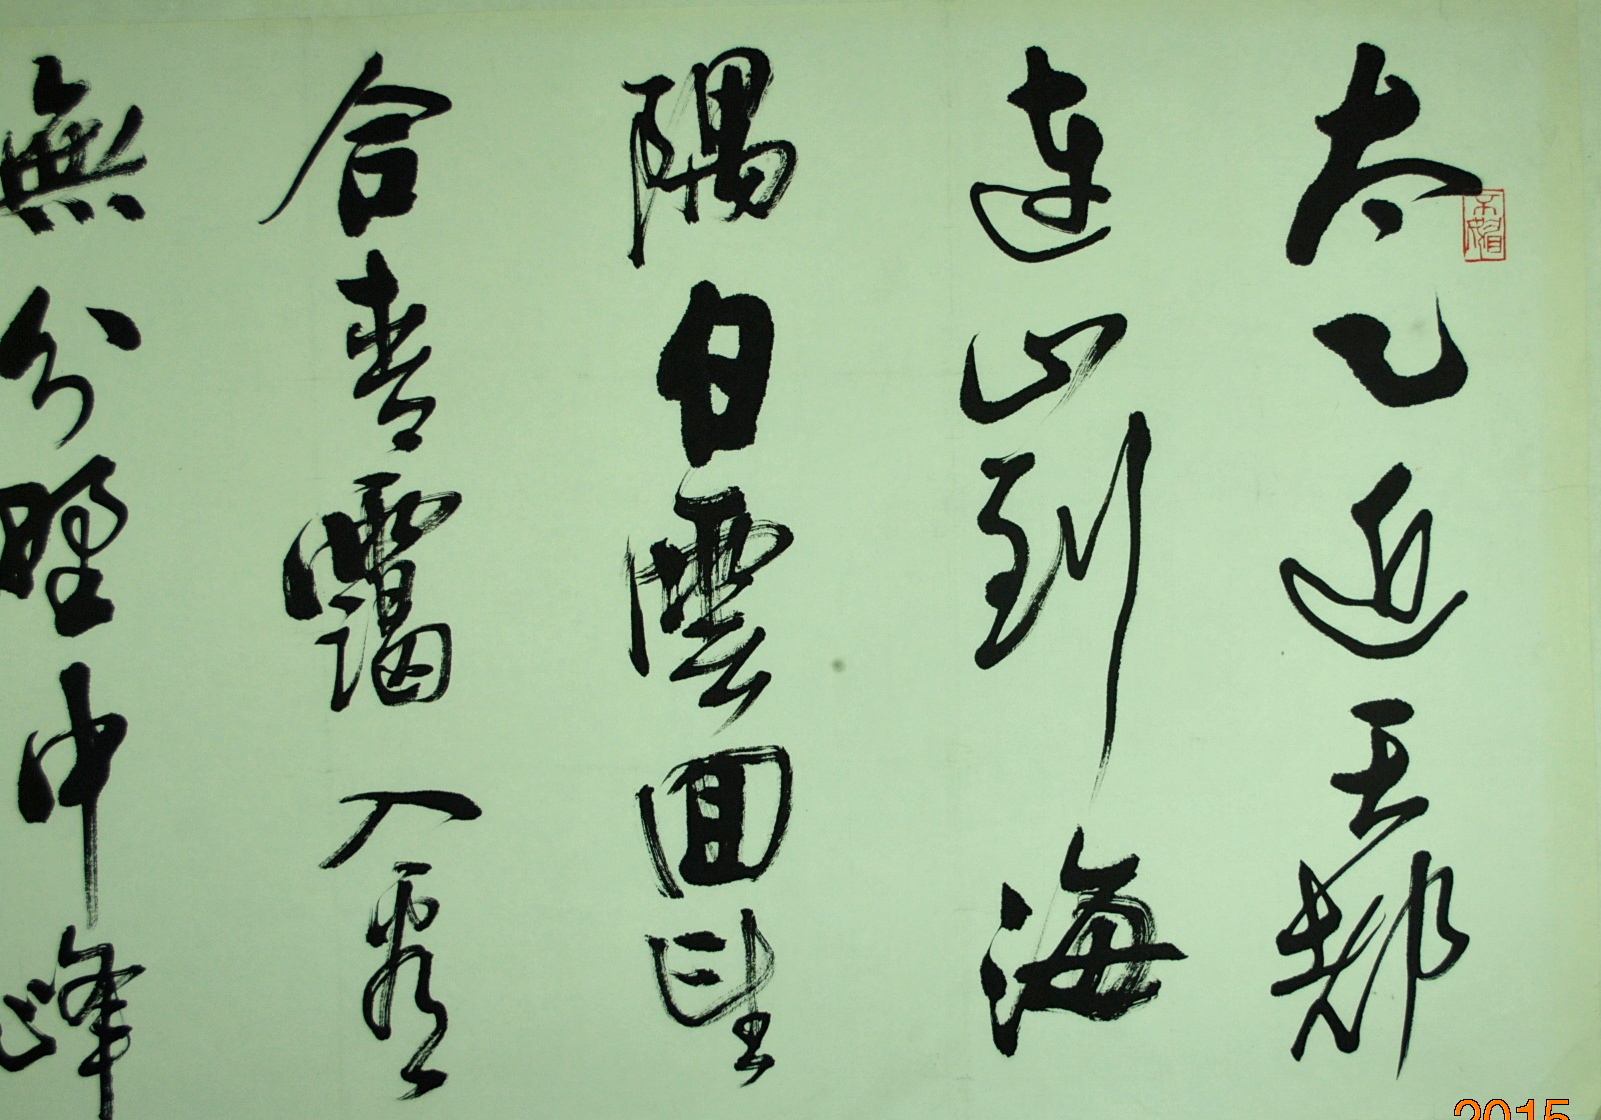 太乙近天都
連山到海
隅白雲回望
合青靄入看
無分野中峰
2015